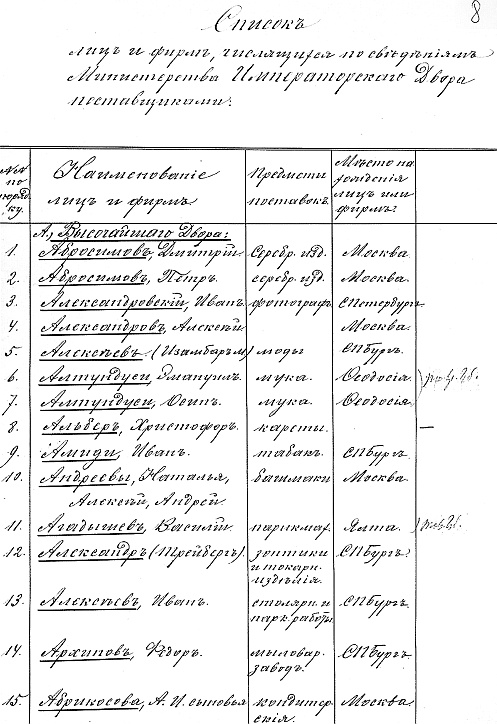 8
Списокъ
лицъ и фирмъ, числящихся по свѣдѣніямъ
Министерства Императорскаго Двора
поставщиками:
№№ по поряд ку. Наименованіе лицъ и фирмъ Предметы поставокъ. Мѣсто на хожденія лицъ или фирмъ.
А, Высочайшаго Двора:
1. Абросимовъ, Дмитрій серебр. изд. Москва.
2. Абросимовъ, Петръ. серебр. изд. Москва.
3. Александровскій, Иванъ фотографъ СПетербургъ
4. Александровъ, Алексѣй Москва.
5. Алексѣевъ (Изамбаръ) моды СПбургъ.
6. Алтундуси, Эмануилъ. мука. Ѳеодосія.
7. Алтундуси, Осипъ. мука. Ѳеодосія.
8. Альберъ, Христофоръ. кареты. —
9. Амиди, Иванъ. табакъ. СПбургъ.
10. Андреевы, Наталья, башмаки Москва.
Алексѣй, Андрей.
11. Агадышевъ, Василій. парикмах. Ялта.
12. Александръ (Трейбергъ). зонтики СПбургъ.
и токарн.
издѣлія.
13. Алексѣевъ, Иванъ. столярн. и СПбургъ.
парк. работы
14. Архиповъ, Ѳедоръ. мыловар. СПбургъ.
заводъ.
15. Абрикосова, А. И. сыновья кондитер Москва.
скія.